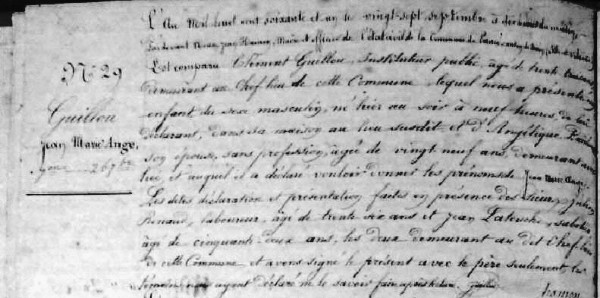 L'An Mil huit cent soixante et un le vingt-sept septembre à dix heures du matin,
Par devant Nous, Jean Maire et officier de l'état civil de la Commune de
Est comparu Clément Guillou, Instituteur public, âgé de trente
demeurant au Chef-lieu de cette Commune, lequel nous a présenté un
enfant du sexe masculin, né hier au soir à neuf heures, de lui
déclarant, dans sa maison au lieu susdit et d'Angélique
son épouse, sans profession, âgée de vingt neuf ans, demeurant
lieu et auquel il a déclaré vouloir donner les prénoms de Jean Marie Ange.
Les dites déclaration et présentation faites en présence des sieurs
Renaud, laboureur, âgé de trente six ans et Jean
âgé de cinquante-deux ans, les deux demeurant au dit Chef-lieu
de cette Commune et avons signé le présent avec le père seulement, les
témoins ayant déclaré ne le savoir faire après lecture. Guillou
N° 29
Guillou
Jean Marie Ange,